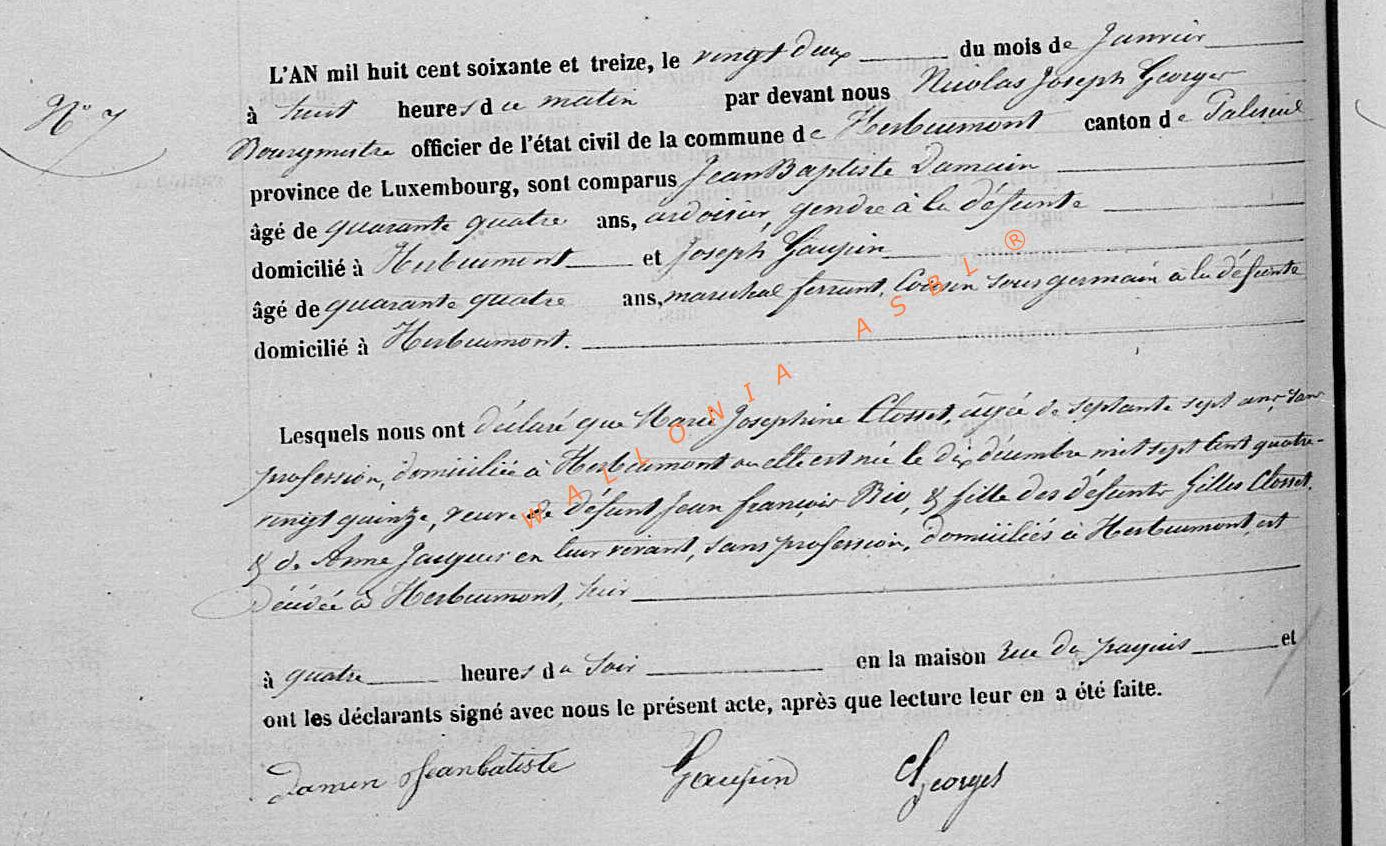 L'AN mil huit cent soixante et treize, le vingt deux du mois de Janvier
N° 7
à huit heures du matin par devant nous Nicolas Joseph Georges
Bourgmestre officier de l'état civil de la commune de Herbeumont canton de Paliseul
province de Luxembourg, sont comparus Jean Baptiste Damain
âgé de quarante quatre ans, ardoisier, gendre à la défunte
domicilié à Herbeumont et Joseph Gaupin
âgé de quarante quatre ans, maréchal ferrant, Cousin sous germain à la défunte
domicilié à Herbeumont.
Lesquels nous ont déclaré que Marie Josephine Closset, âgée de septante sept ans, sans
profession, domiciliée à Herbeumont ou elle est née le dix décembre mil sept cent quatre-
vingt quinze, veuve de défunt Jean François Bio, & fille des défunts Gilles Closset,
& de Anne Jacques en leur vivant, sans profession, domiciliés à Herbeumont, est
décédée à Herbeumont, hier
à quatre heures du soir en la maison rue du paquis et
ont les déclarants signé avec nous le présent acte, après que lecture leur en a été faite.
Damen Jeanbatiste Gaupin Georges
WALLONIA ASBL ®